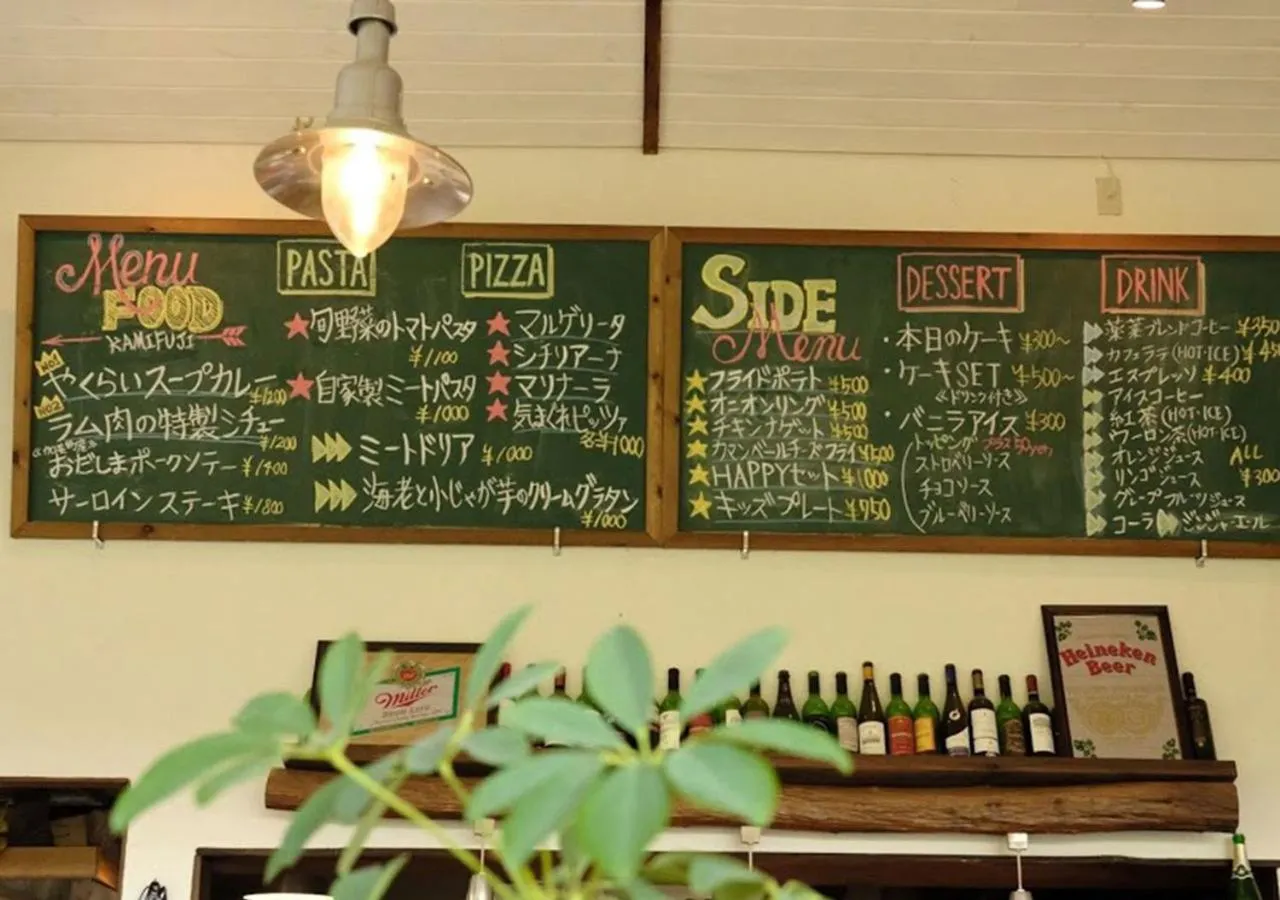 Menu
FOOD
KAMIFUJI
NO1
やくらいスープカレー ¥1200
NO2
ラム肉の特製シチュー ¥1200
おだしまポークソテー ¥1400
サーロインステーキ ¥1800
PASTA
旬野菜のトマトパスタ
¥1100
自家製ミートパスタ
¥1000
ミートドリア ¥1000
海老と小じゃが芋のクリームグラタン
¥1000
PIZZA
マルゲリータ
シチリアーナ
マリナーラ
気まぐれピッツァ
各¥1000
SIDE
Menu
フライドポテト ¥500
オニオンリング ¥500
チキンナゲット ¥500
カマンベールチーズフライ ¥500
HAPPYセット ¥1000
キッズプレート ¥750
DESSERT
・本日のケーキ ¥300~
・ケーキSET ¥500~
≪ドリンク付き≫
・バニラアイス ¥300
トッピング プラス50yen
ストロベリーソース
チョコソース
ブルーベリーソース
DRINK
ブレンドコーヒー ¥350
カフェラテ(HOT・ICE)
エスプレッソ ¥400
アイスコーヒー
紅茶(HOT・ICE)
ウーロン茶(HOT・ICE)
オレンジジュース
リンゴジュース
グレープフルーツジュース
コーラ ジンジャーエール
ALL
¥300
Miller
Heineken
Beer